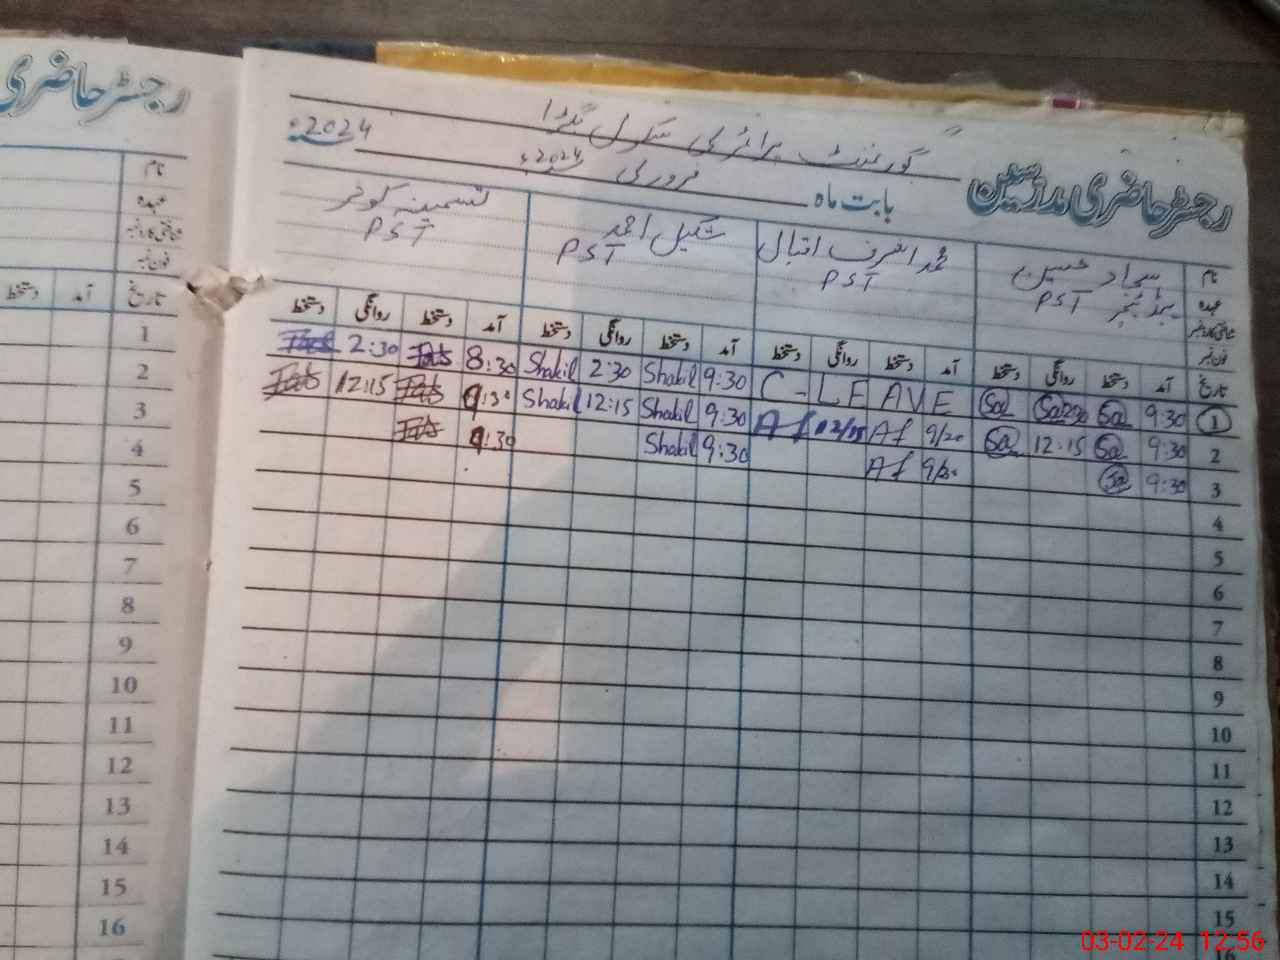 رجسٹر حاضری
نام
عہدہ
شناختی کارڈ نمبر
فون نمبر
تاریخ آمد دستخط
1
2
3
4
5
6
7
8
9
10
11
12
13
14
15
16
گورنمنٹ پرائمری سکول
2024
رجسٹر حاضری مدرسین
بابت ماہ فروری 2024ء
نام سجاد حسین محمد اشرف اقبال شکیل احمد تسمینہ کوثر
عہدہ PST PST PST PST
شناختی کارڈ نمبر
فون نمبر
تاریخ آمد دستخط روانگی دستخط آمد دستخط روانگی دستخط آمد دستخط روانگی دستخط آمد دستخط روانگی دستخط
1 9:30 Sa Sa C-LEAVE 9:30 Shakil 2:30 Shakil 8:30 2:30
2 9:30 Sa 12:15 Sa 9/20 Af 12/15 Af 9:30 Shakil 12:15 Shakil 9:30 12:15
3 9:30 Sa Af 9:30 Shakil 9:30
4
5
6
7
8
9
10
11
12
13
14
15
16
03-02-24 12:56